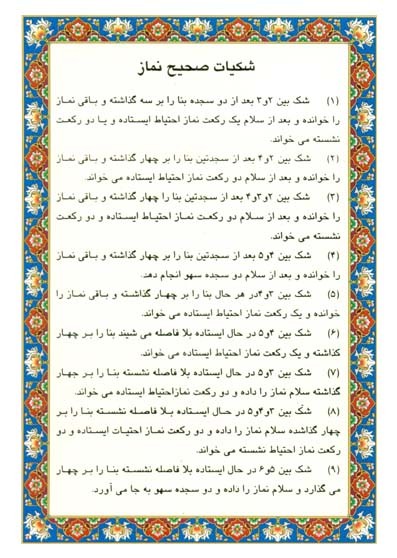 شکیات صحیح نماز
(۱) شک بین ۲و۳ بعد از دو سجده بنا را بر سه گذاشته و باقی نماز
را خوانده و بعد از سلام یک رکعت نماز احتیاط ایستاده و یا دو رکعت
نشسته می خواند.
(۲) شک بین ۲و۴ بعد از سجدتین بنا را بر چهار گذاشته و باقی نماز
را خوانده و بعد از سلام دو رکعت نماز احتیاط ایستاده می خواند.
(۳) شک بین ۲و۳و۴ بعد از سجدتین بنا را چهار گذاشته و باقی نماز
را خوانده و بعد از سلام دو رکعت نماز احتیاط ایستاده و دو رکعت
نشسته می خواند.
(۴) شک بین ۴و۵ بعد از سجدتین بنا را بر چهار گذاشته و باقی نماز
را خوانده و بعد از سلام دو سجده سهو انجام دهد.
(۵) شک بین ۳و۴در هر حال بنا را بر چهار گذاشته و باقی نماز را
خوانده و یک رکعت نماز احتیاط ایستاده می خواند.
(۶) شک بین ۴و۵ در حال ایستاده بلا فاصله می شیند بنا را بر چهار
کذاشته و یک رکعت نماز احتیاط ایستاده می خواند.
(۷) شک بین ۳و۵ در حال ایستاده بلا فاصله نشسته بنا را بر جهار
گذاشته سلام نماز را داده و دو رکعت نمازاحتیاط ایستاده می خواند.
(۸) شک بین ۳و۴و۵ در حال ایستاده بلا فاصله نشسته بنا را بر
چهار گذاشده سلام نماز را داده و دو رکعت نماز احتیات ایستاده و دو
رکعت نماز احتیاط نشسته می خواند.
(۹) شک بین ۵و۶ در حال ایستاده بلا فاصله نشسته بنا را بر چهار
می گذارد و سلام نماز را داده و دو سجده سهو به جا می آورد.